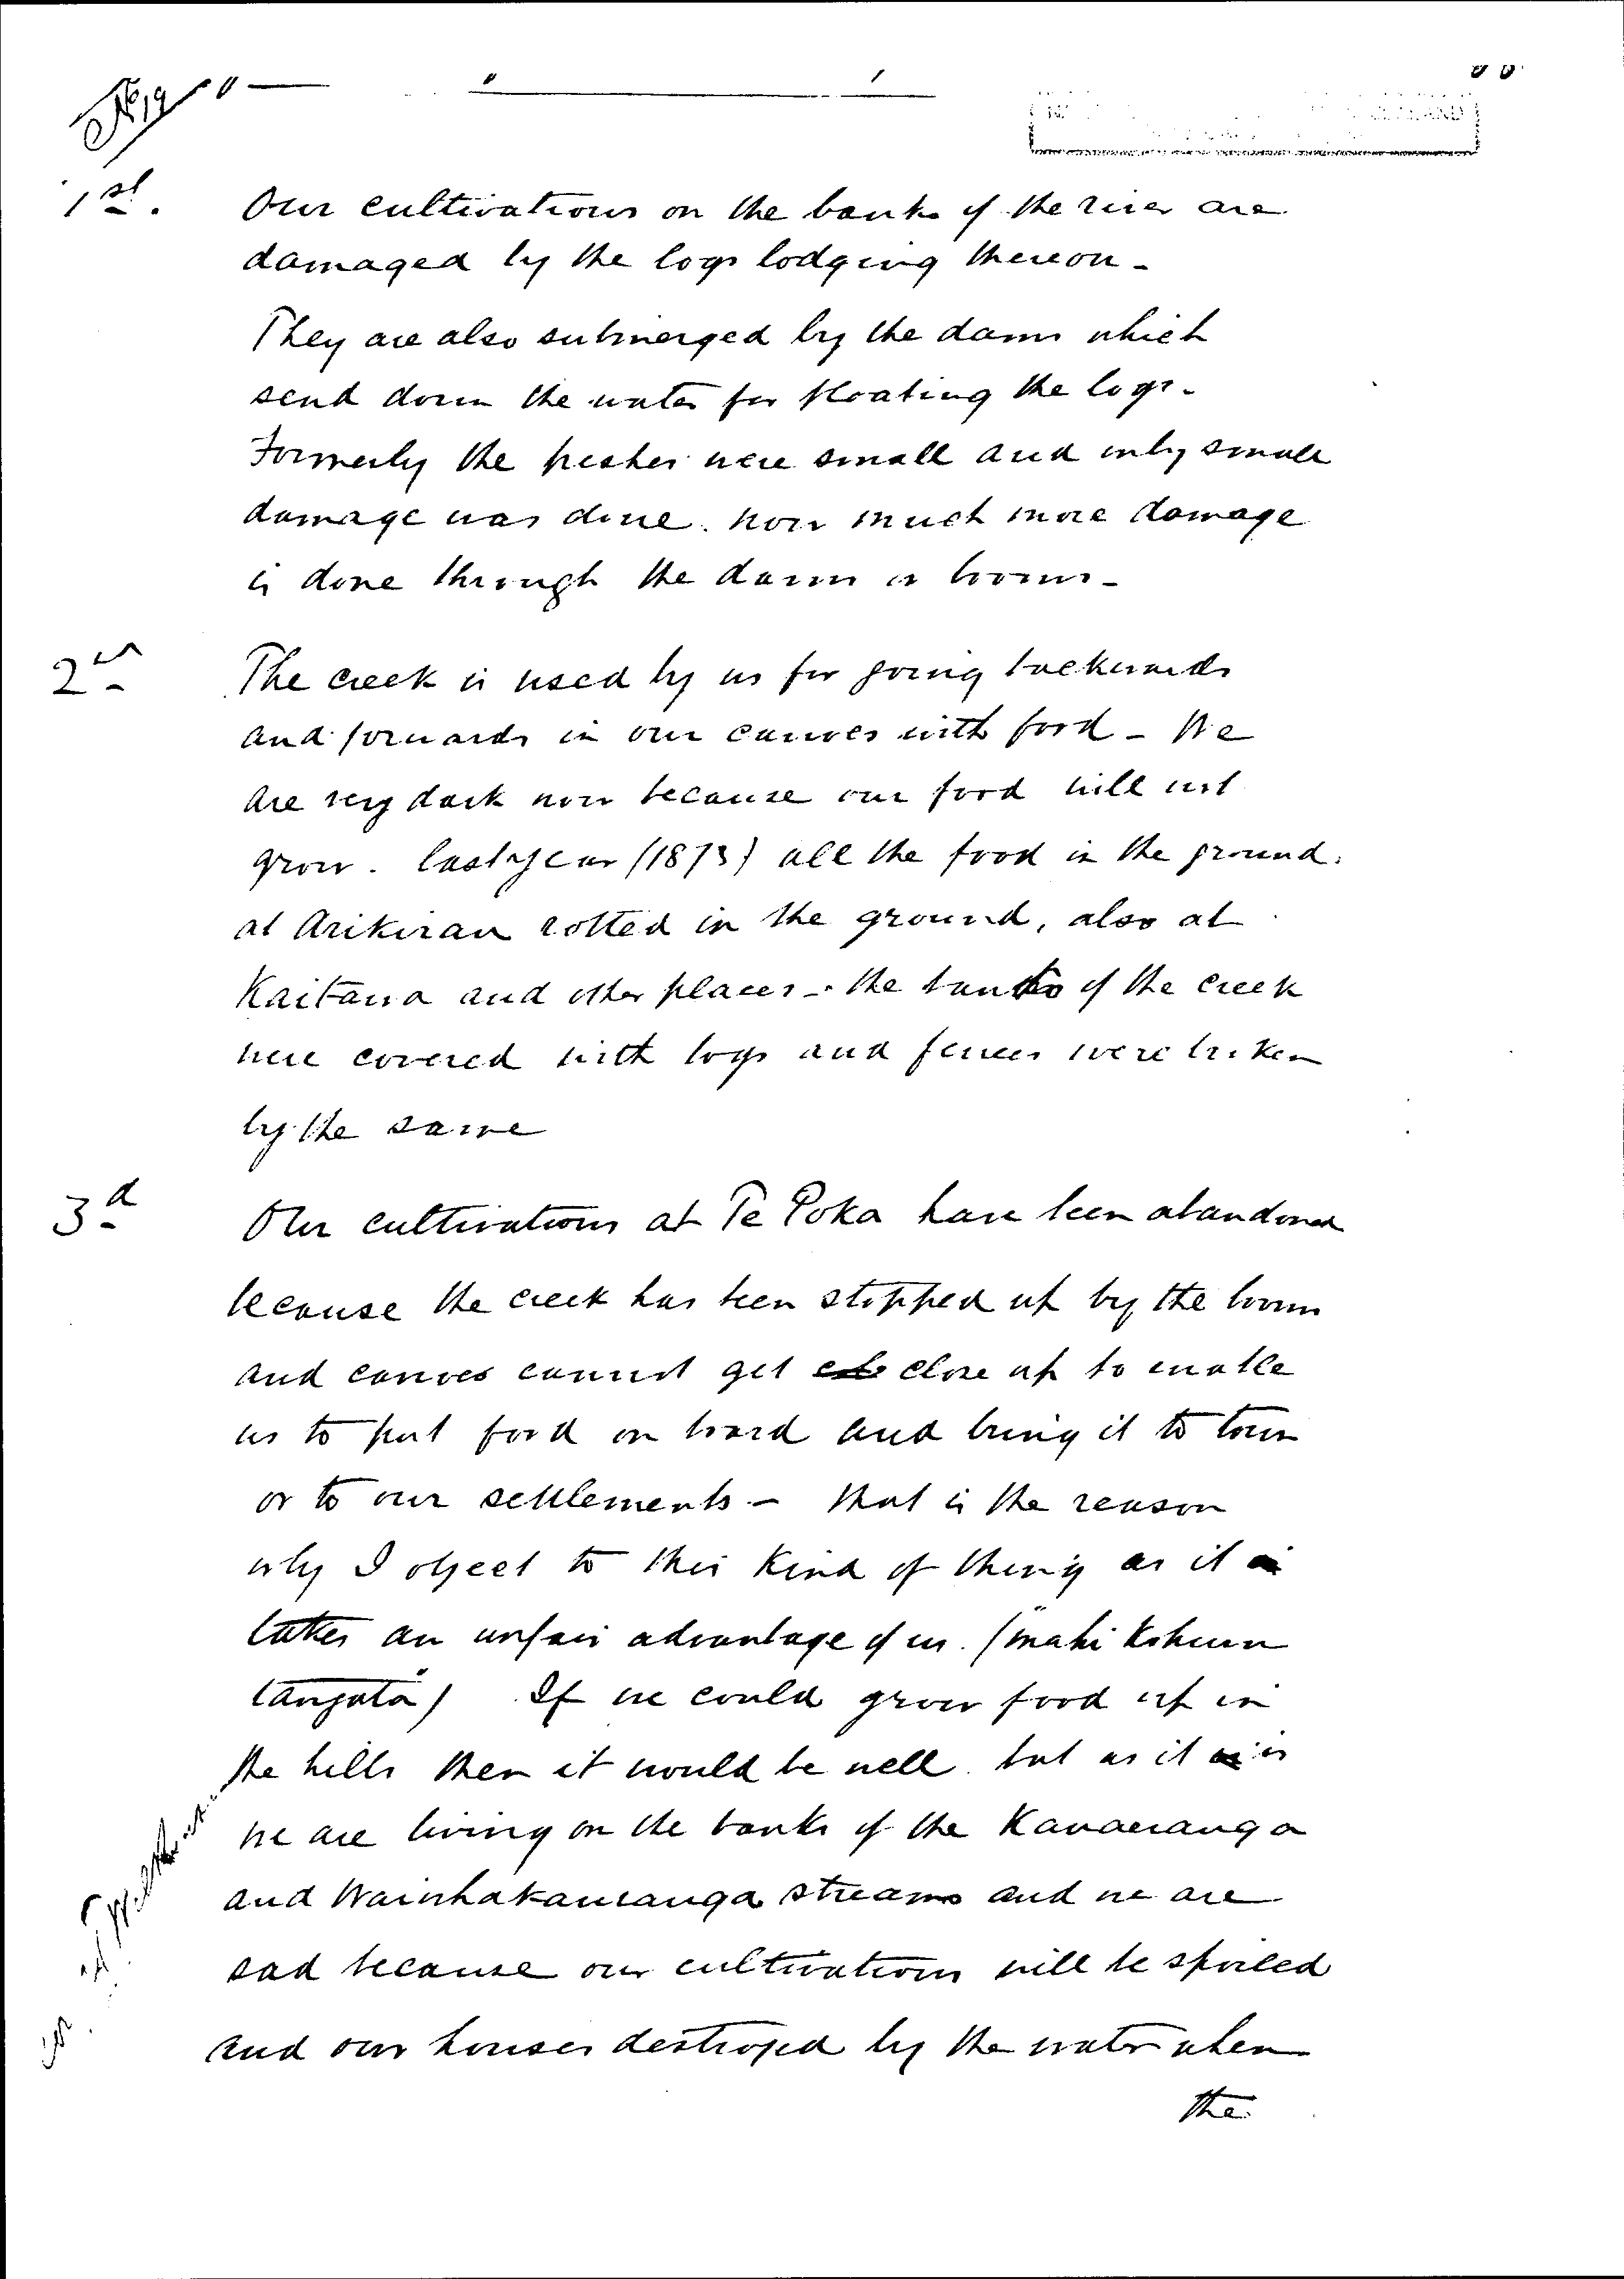 No 19
1st. Our cultivations on the banks of the river are
damaged by the logs lodging thereon -
They are also submerged by the dams which
send down the water for floating the logs -
Formerly the freshes were small and only small
damage was done. now much more damage
is done through the dams or booms -
2nd The creek is used by us for going backwards
and forwards in our canoes with food - We
are very dark now because our food will not
grow. last year (1873) all the food in the ground
at Arikirau rotted in the ground, also at
Kaitawa and other places - the banks of the creek
were covered with logs and fences were broken
by the same
3d Our cultivations at Te Poka have been abandoned
because the creek has been stopped up by the boom
and canoes cannot get close up to enable
us to put food on board and bring it to town
or to our settlements - that is the reason
why I object to this kind of thing as it
takes an unfair advantage of us. ("mahi kohuru
tangata") If we could grow food up in
the hills then it would be well. but as it is
we are living on the banks of the Kauaeranga
and Waiwhakauranga streams and we are
sad because our cultivations will be spoiled
and our houses destroyed by the water when
the